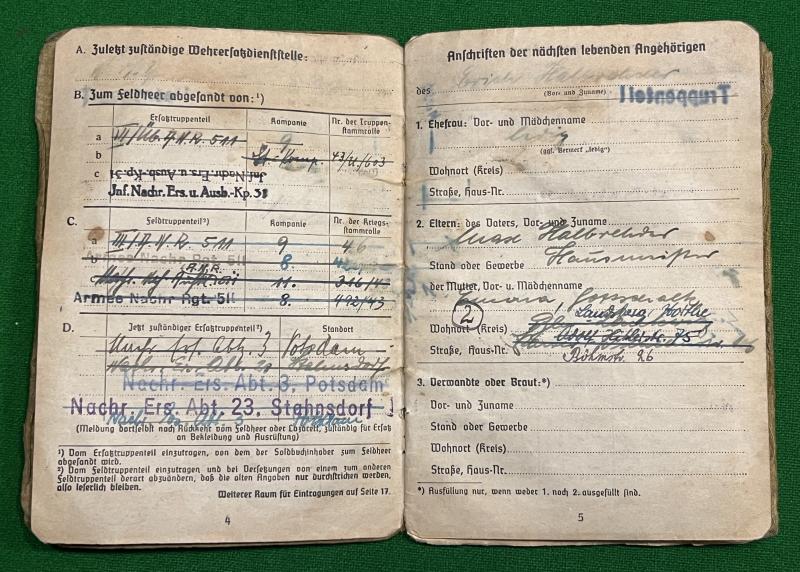 A. Zuletzt zuständige Wehrersatzdienststelle:
B. Zum Feldheer abgesandt von:¹)
Ersatztruppenteil Kompanie Nr. der Truppenstammrolle
a 511 9
b 43/
c Inf. Nachr. Ers. u. Ausb.-Kp. 31
Jnf. Nachr. Ers. u. Ausb.-Kp. 31
C. Feldtruppenteil²) Kompanie Nr. der Kriegsstammrolle
a III/A.N.R. 511 9 46
b Armee Nachr Rgt. 511 8.
A.N.R. 11. 316/
Armee Nachr Rgt. 511 8. 492/43
D. Jetzt zuständiger Ersatztruppenteil²) Standort
Nachr. Ers. Abt. 3 Potsdam
Nachr. Ers. Abt. 23 Stahnsdorf
Nachr. Ers. Abt. 3, Potsdam
Nachr. Ers. Abt. 23, Stahnsdorf
Nachr. Ers. Abt. 3 Potsdam
(Meldung dortselbst nach Rückkehr vom Feldheer oder Lazarett, zuständig für Ersatz
an Bekleidung und Ausrüstung)
¹) Vom Ersatztruppenteil einzutragen, von dem der Soldbuchinhaber zum Feldheer
abgesandt wird.
²) Vom Feldtruppenteil einzutragen und bei Versetzungen von einem zum anderen
Feldtruppenteil derart abzuändern, daß die alten Angaben nur durchstrichen werden,
also leserlich bleiben.
Weiterer Raum für Eintragungen auf Seite 17.
4
Anschriften der nächsten lebenden Angehörigen
des Erich Halbreuder
(Vor- und Zuname)
Truppenteil
1. Ehefrau: Vor- und Mädchenname
ledig
(ggf. Vermerk „ledig“)
Wohnort (Kreis)
Straße, Haus-Nr.
2. Eltern: des Vaters, Vor- und Zuname
Max Halbreuder
Stand oder Gewerbe Hausmeister
der Mutter, Vor- u. Mädchenname
Gottschalk
2 Landsberg Warthe
Wohnort (Kreis)
Adolf Hitlerstr. 75
Straße, Haus-Nr.
Böhmstr. 26
3. Verwandte oder Braut:*)
Vor- und Zuname
Stand oder Gewerbe
Wohnort (Kreis)
Straße, Haus-Nr.
*) Ausfüllung nur, wenn weder 1. noch 2. ausgefüllt sind.
5